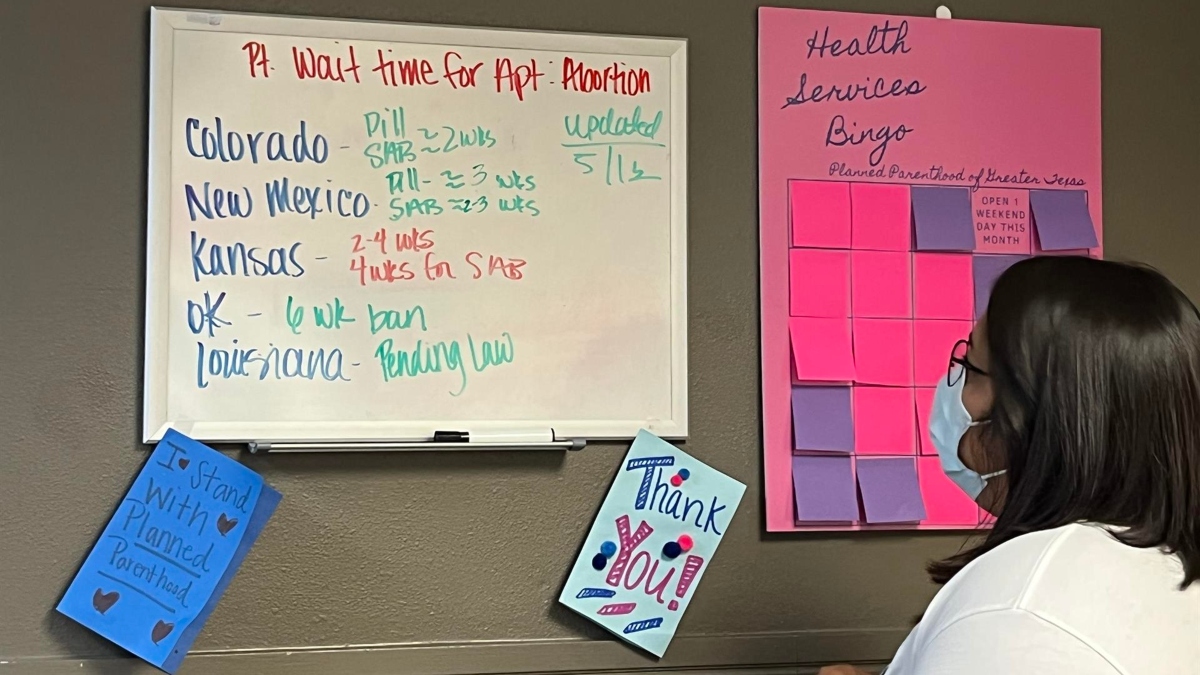 Pt. Wait time for Apt: Abortion
updated
5/12
Colorado - Pill
SAB ≈ 2 wks
New Mexico - Pill - ≈ 3 wks
SAB ≈ 2-3 wks
Kansas - 2-4 wks
4wks for SAB
OK - 6 wk ban
Louisiana - Pending Law
I Stand
With
Planned
Parenthood
Thank
You!
Health
Services
Bingo
Planned Parenthood of Greater Texas
OPEN 1
WEEKEND
DAY THIS
MONTH